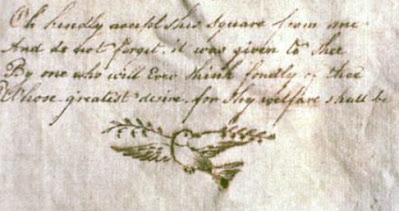 Oh kindly accept this square from me
And do not forget it was given to thee
By one who will Ever think fondly of thee
Whose greatest desire for thy welfare shall be